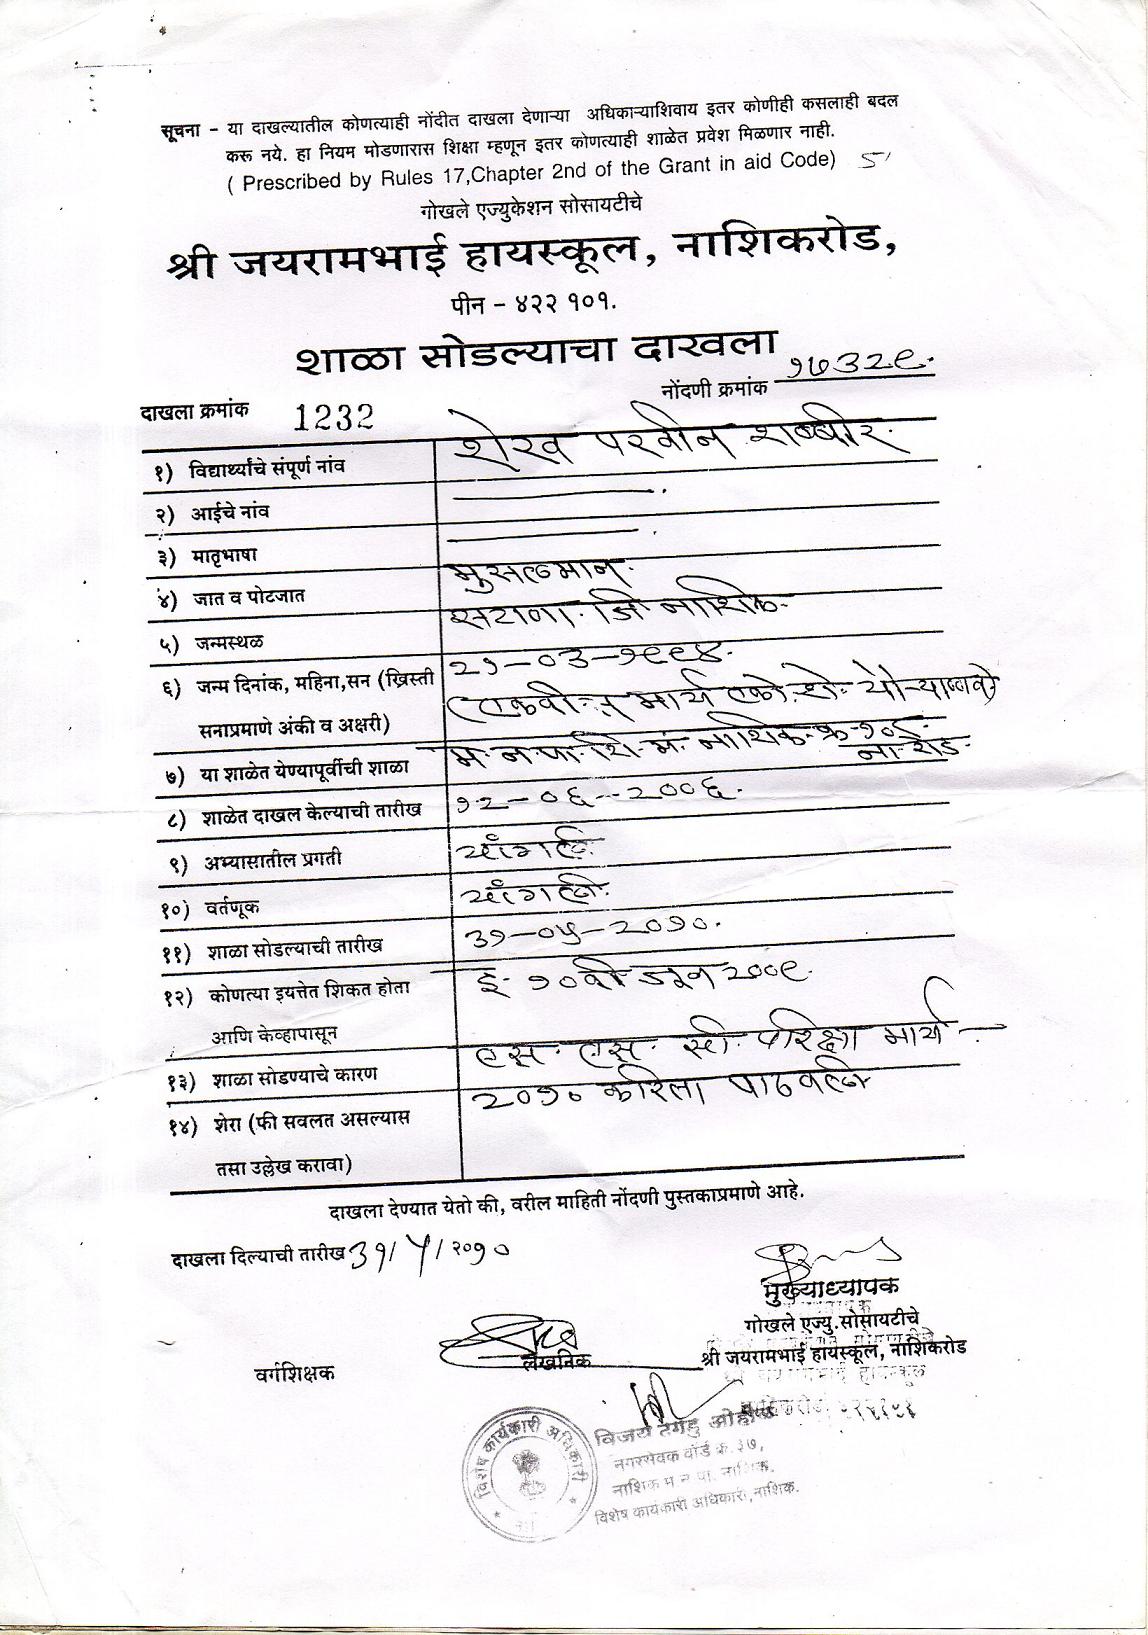 सूचना - या दाखल्यातील कोणत्याही नोंदीत दाखला देणाऱ्या अधिकाऱ्याशिवाय इतर कोणीही कसलाही बदल
करू नये. हा नियम मोडणारास शिक्षा म्हणून इतर कोणत्याही शाळेत प्रवेश मिळणार नाही.
( Prescribed by Rules 17,Chapter 2nd of the Grant in aid Code)
गोखले एज्युकेशन सोसायटीचे
श्री जयरामभाई हायस्कूल, नाशिकरोड,
पीन - ४२२ १०१.
शाळा सोडल्याचा दाखला
नोंदणी क्रमांक १७३२९.
दाखला क्रमांक 1232
१) विद्यार्थ्यांचे संपूर्ण नांव शेख परवीन शब्बीर.
२) आईचे नांव
३) मातृभाषा
४) जात व पोटजात मुसलमान.
५) जन्मस्थळ सटाणा. जि नाशिक.
६) जन्म दिनांक, महिना,सन (ख्रिस्ती २१-०३-१९९४.
सनाप्रमाणे अंकी व अक्षरी) (एकवीस मार्च एकोणीसशे चौऱ्याण्णव)
७) या शाळेत येण्यापूर्वीची शाळा म. न. पा. शि. मं. नाशिक. क्र-१०८ ना. रोड.
८) शाळेत दाखल केल्याची तारीख १२-०६-२००६.
९) अभ्यासातील प्रगती चांगली.
१०) वर्तणूक चांगली.
११) शाळा सोडल्याची तारीख ३१-०५-२०१०.
१२) कोणत्या इयत्तेत शिकत होता इ. १०वी जून २००९.
आणि केव्हापासून
१३) शाळा सोडण्याचे कारण एस. एस. सी. परिक्षा मार्च -
२०१० करिता पाठवली
१४) शेरा (फी सवलत असल्यास
तसा उल्लेख करावा)
दाखला देण्यात येतो की, वरील माहिती नोंदणी पुस्तकाप्रमाणे आहे.
दाखला दिल्याची तारीख ३१/५/२०१०
मुख्याध्यापक
गोखले एज्यु.सोसायटीचे
श्री जयरामभाई हायस्कूल, नाशिकरोड
वर्गशिक्षक लेखनिक
विशेष कार्यकारी अधिकारी
विजय
नगरसेवक वॉर्ड क्र. ३७,
नाशिक म न पा. नाशिक.
विशेष कार्यकारी अधिकारी, नाशिक.